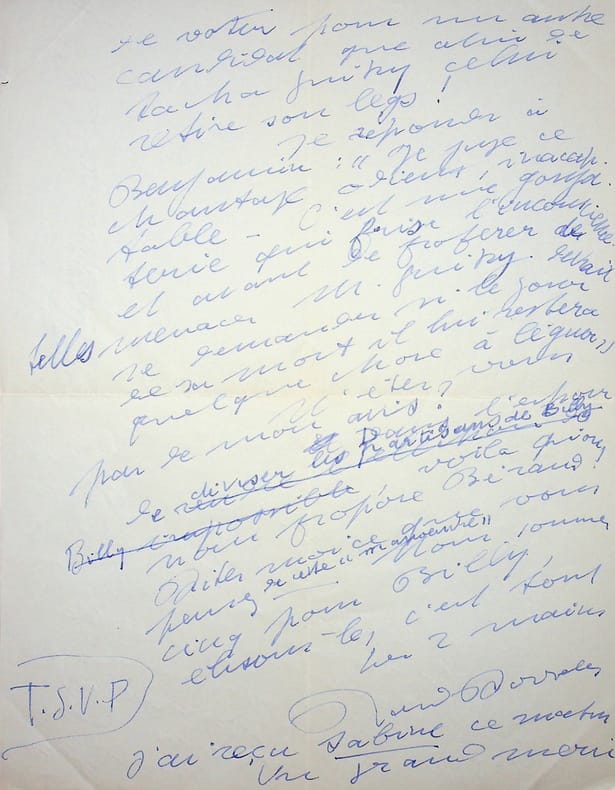 de voter pour un autre
candidat que celui de
Sacha Guitry, celui
retire son legs!
Je réponds à
Benjamin : "Je juge ce
chantage odieux, inaccep-
table - C'est une goujа-
terie qui frise l'inconscience
et avant de proférer de
telles menaces M. Guitry devait
se demander si le jour
de sa mort il lui restera
quelque chose à léguer"
N'êtes vous
pas de mon avis?
Dans l'espoir
de diviser les partisans de Billy
Billy impossible, voilà qu'on
nous propose Béraud!
Dites moi ce que vous
pensez de cette "manoeuvre"
Nous sommes
cinq pour Billy,
élisons-le, c'est tout
les 2 mains
T.S.V.P
j'ai reçu Sabine ce matin
Un grand merci